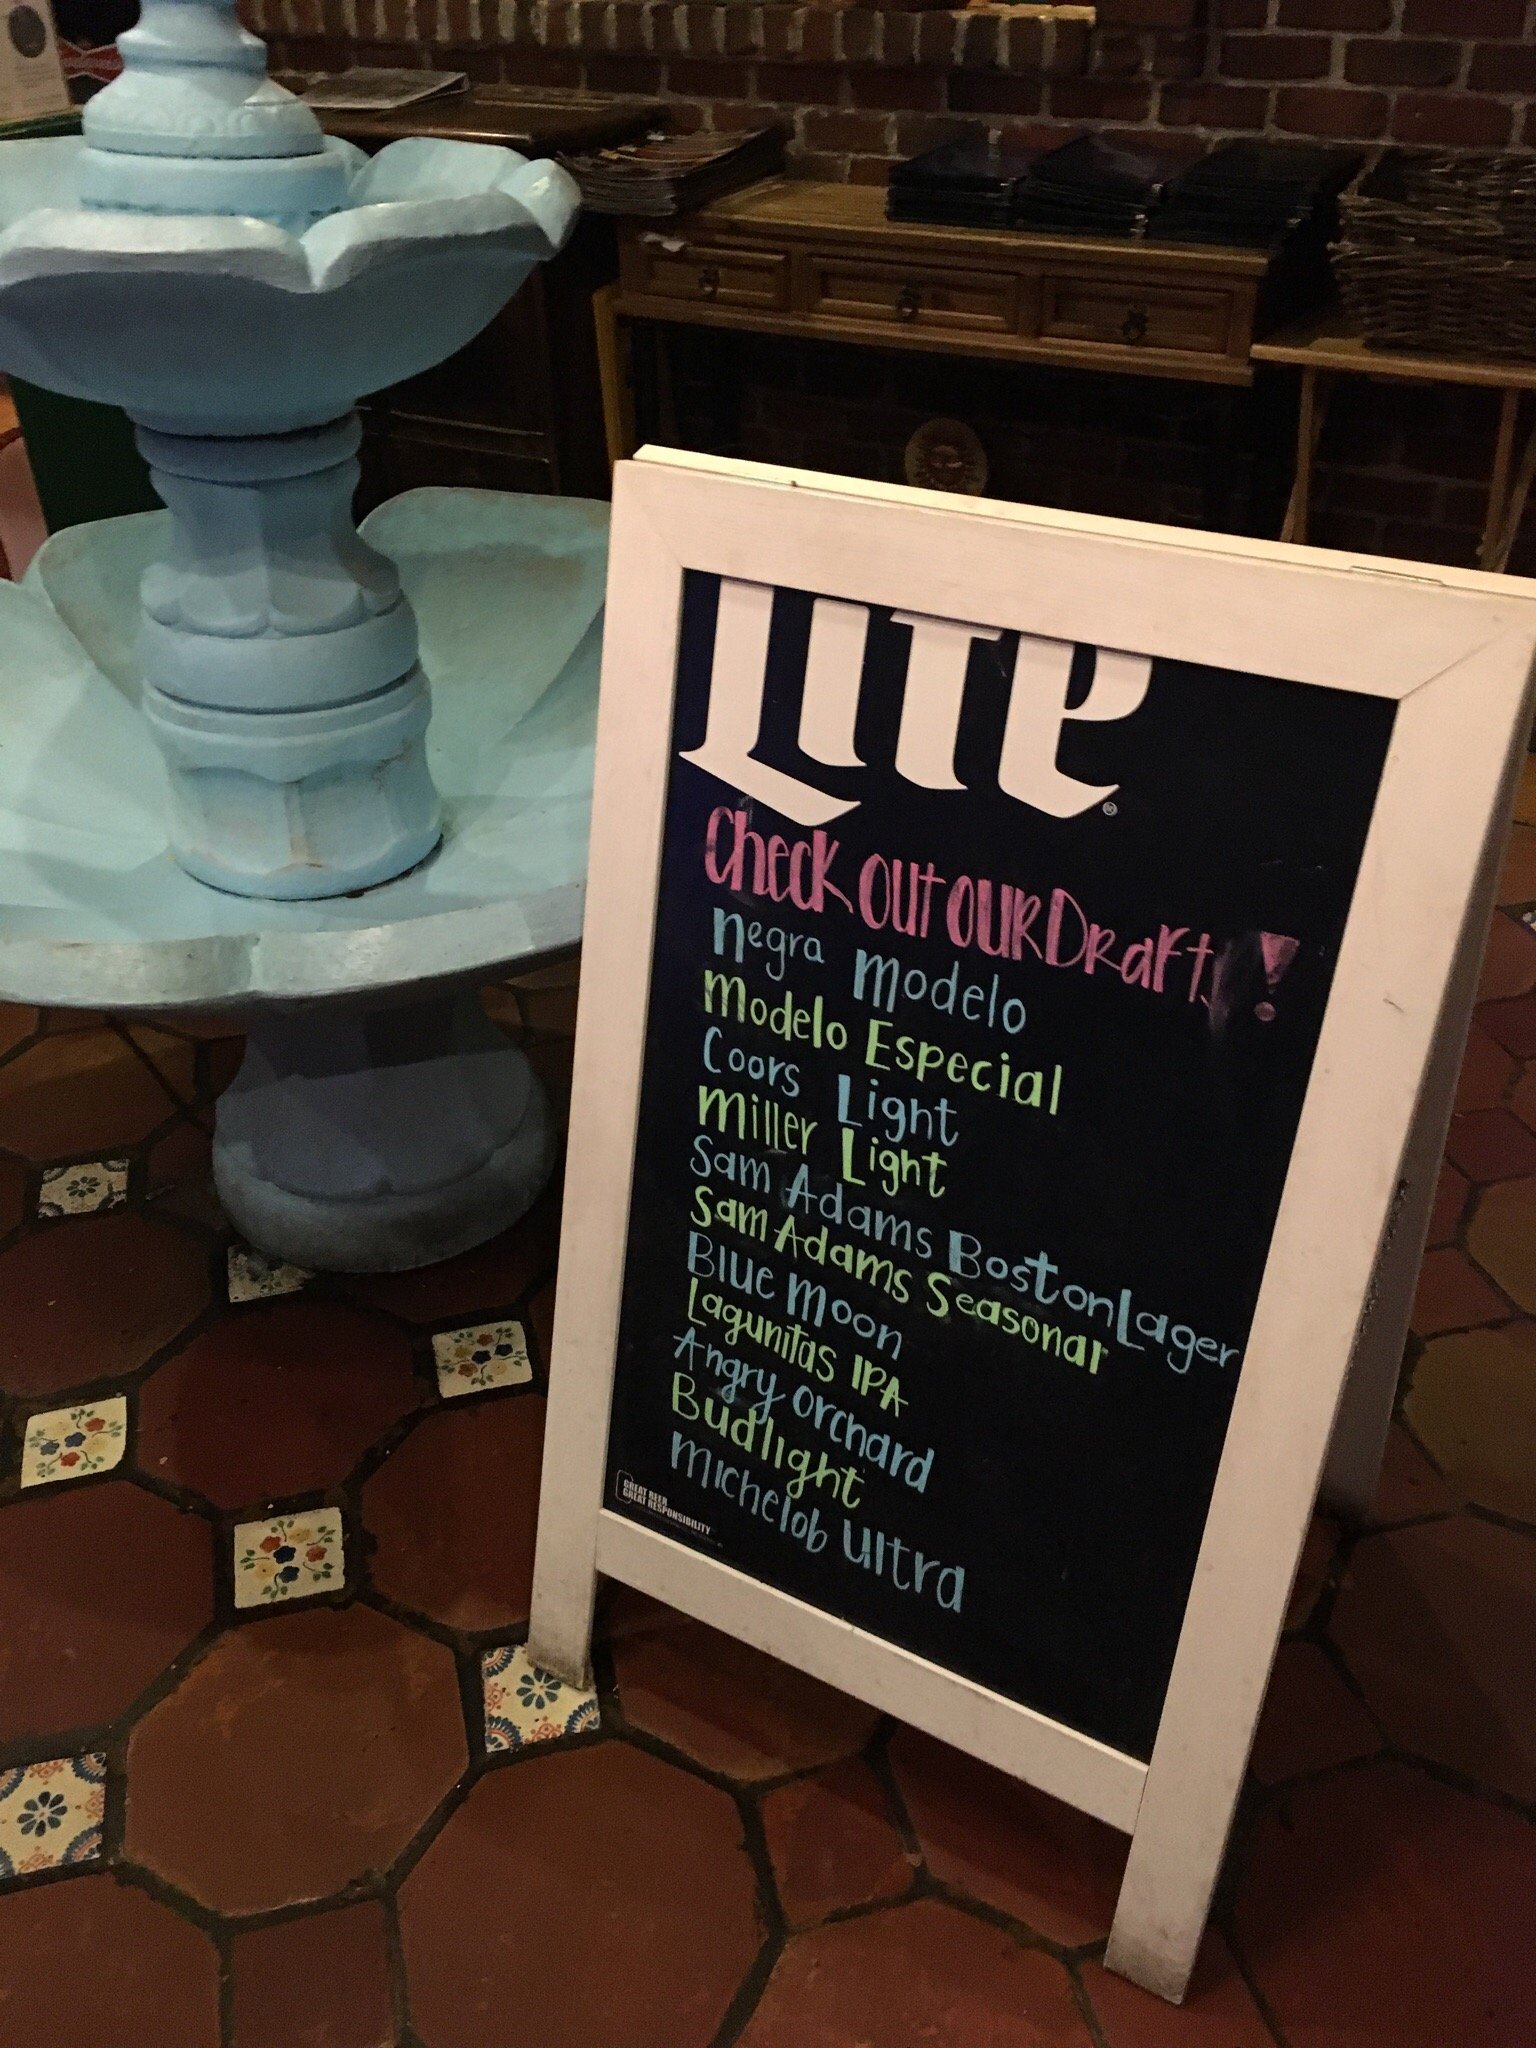 Lite
Check out our Drafts!
Negra Modelo
Modelo Especial
Coors Light
Miller Light
Sam Adams Boston Lager
Sam Adams Seasonal
Blue Moon
Lagunitas IPA
Angry Orchard
Budlight
Michelob Ultra
GREAT BEER
GREAT RESPONSIBILITY